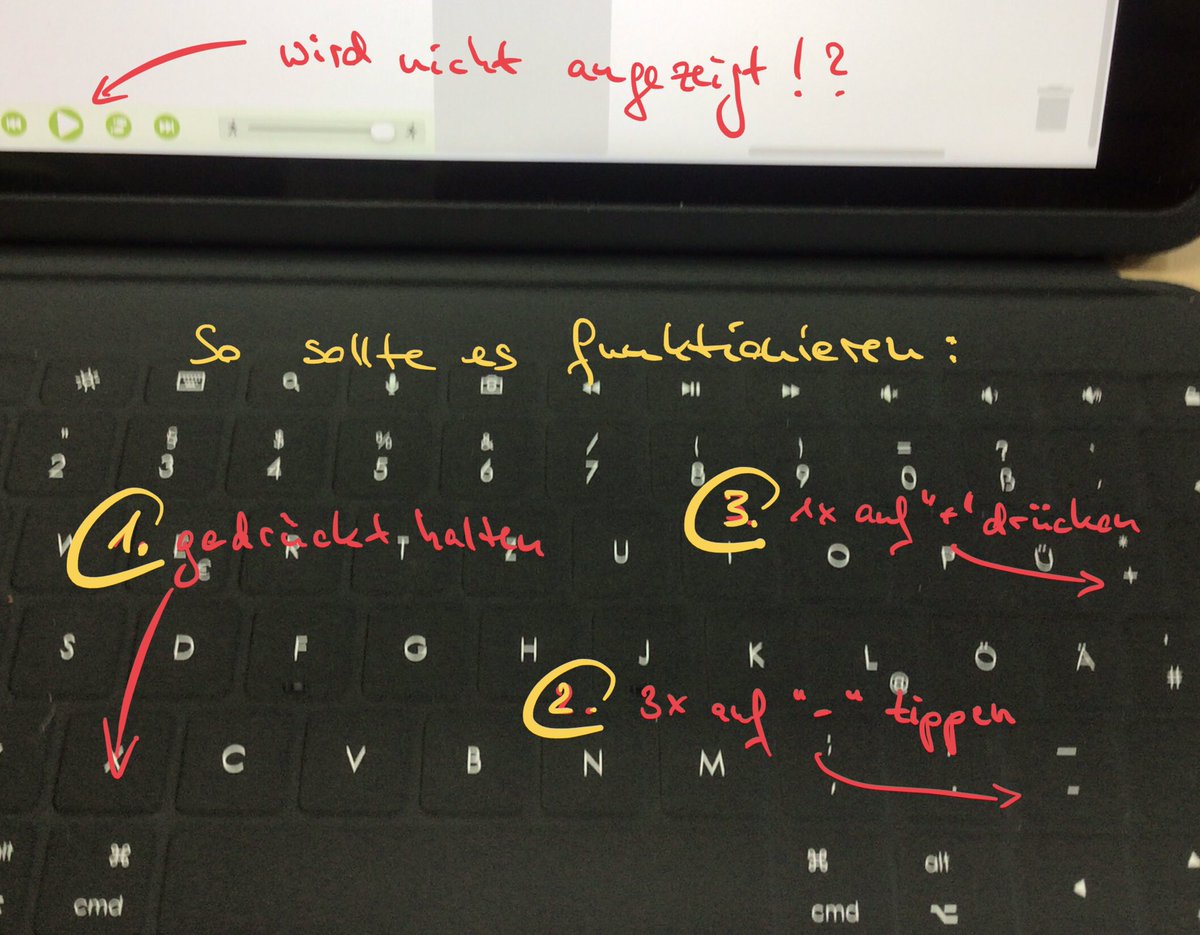 wird nicht angezeigt!?
So sollte es funktionieren:
" § $ % & / ( ) = ?
2 3 4 5 6 7 8 9 0 ß
1. gedrückt halten
3. 1x auf "+" drücken
W E R T Z U I O P Ü * +
€
S D F G H J K L Ö Ä ' #
@
2. 3x auf "-" tippen
X C V B N M ; : _
, . -
⌘ ⌘ alt
cmd cmd ⌥